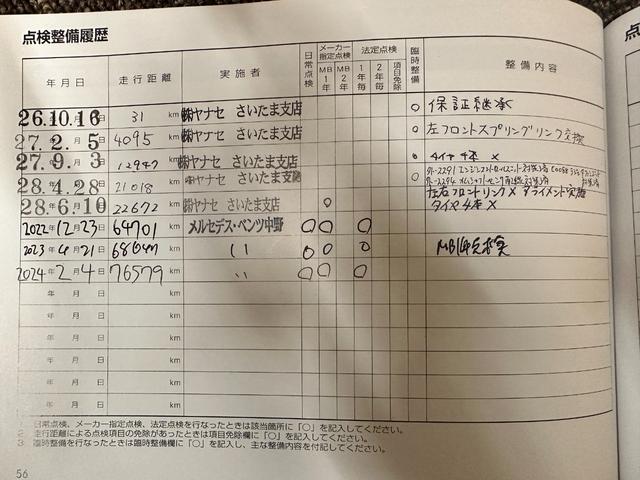 点検整備履歴
年月日 走行距離 実施者 日常点検 メーカー指定点検 MB1年 MB2年 法定点検 1年毎 2年毎 項目免除 臨時整備 整備内容
26.10.16 31 km ㈱ヤナセ さいたま支店 ○ 保証継承
27.2.5 4095 km ㈱ヤナセ さいたま支店 ○ 左フロントスプリングリンク交換
27.9.3 12947 km ㈱ヤナセ さいたま支店 ○ タイヤ4本 ×
28.4.28 21018 km ㈱ヤナセ さいたま支店 ○
左右フロントリンク× アライメント実施
28.6.10 22672 km ㈱ヤナセ さいたま支店 ○ タイヤ4本×
2022年12月23日 64701 km メルセデス・ベンツ中野 ○ ○ ○
2023年4月21日 km 〃 ○ ○ ○
2024年2月4日 76579 km 〃 ○ ○ ○
年 月 日 km
年 月 日 km
年 月 日 km
年 月 日 km
年 月 日 km
年 月 日 km
1 日常点検、メーカー指定点検、法定点検を行なったときは該当箇所に「○」を記入してください。
2 走行距離による点検項目の免除があったときは項目免除欄に「○」を記入してください。
3 臨時整備を行なったときは臨時整備欄に「○」を記入し、主な整備内容を付記してください。
56